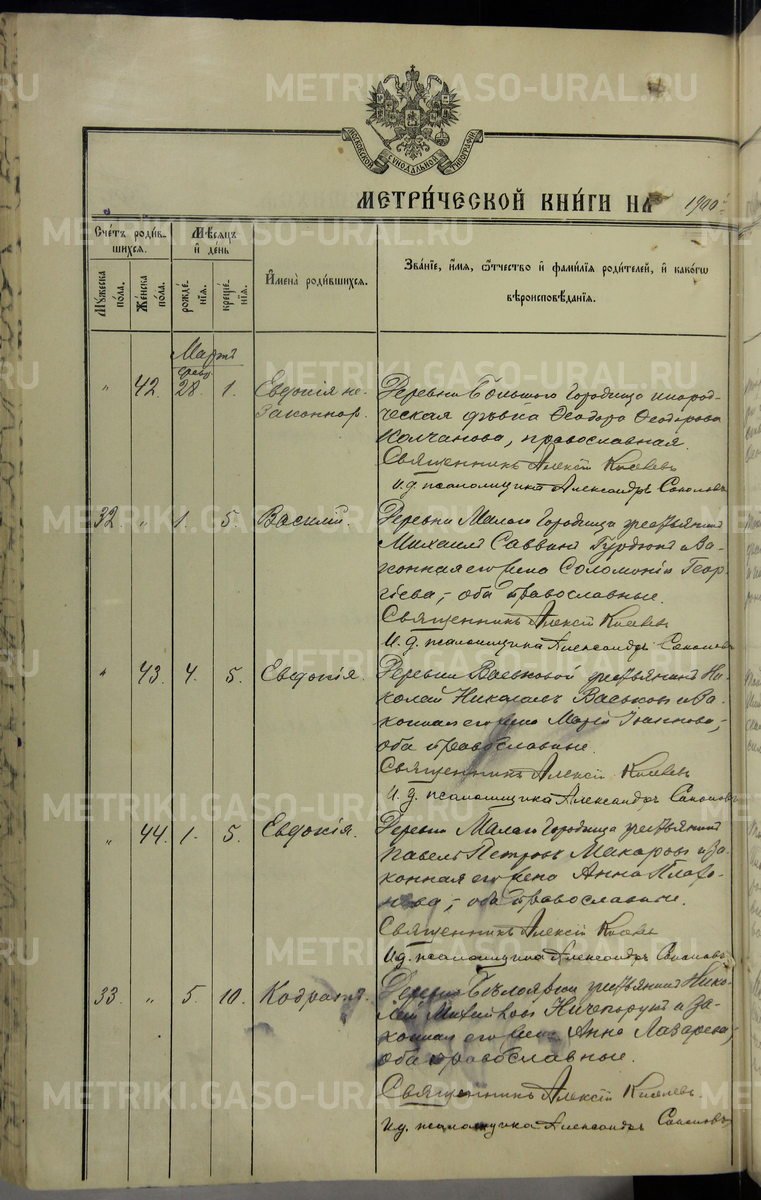 МОСКОВСКОЙ СѴНОДАЛЬНОЙ ТИПОГРАФІИ
МЕТРИ́ЧЕСКОЙ КНИ́ГИ НА 1900
Сче́тъ роди́в-
шихся.
Мѣ́сяцъ
и҆ де́нь
Му́жеска
по́ла.
Же́нска
по́ла.
рожде́-
нїѧ.
креще́-
нїѧ.
И҆мена̀ роди́вшихся.
Зва́нїе, и҆́мя, ѻ҆́тчество и҆ фами́лїя роди́телей, и҆ како́гѡ
вѣроисповѣ́данїя.
Мартъ
„ 42. февр. 28. 1. Евдокія не-
законнор.
Деревни Большого Городища инород-
ческая дѣвка Ѳеодора Ѳеодорова
Колчанова, православная.
Священникъ Алексій Киселевъ
И.д. псаломщика Александръ Соколовъ
32. „ 1. 5. Василій.
Деревни Малаго Городища крестьянинъ
Михаилъ Саввинъ и за-
конная его жена Соломонія Геор-
гіева, - оба православные.
Священникъ Алексій Киселевъ
И.д. псаломщика Александръ Соколовъ
„ 43. 4. 5. Евдокія.
Деревни Васьковой крестьянинъ Ни-
колай Николаевъ Васьковъ и за-
конная его жена Марія Іоаннова, -
оба православные.
Священникъ Алексій Киселевъ
И.д. псаломщика Александръ Соколовъ
„ 44. 1. 5. Евдокія.
Деревни Малаго Городища крестьянинъ
Павелъ Петровъ Макаровъ и за-
конная его жена Анна
- оба православные.
Священникъ Алексій Киселевъ
И.д. псаломщика Александръ Соколовъ
33. „ 5. 10. Кодратъ.
Деревни Бѣлоярки крестьянинъ Нико-
лай Михайловъ Ничепорукъ и за-
конная его жена Анна Лазарева,
оба православные.
Священникъ Алексій Киселевъ
И.д. псаломщика Александръ Соколовъ
METRIKI.GASO-URAL.RU